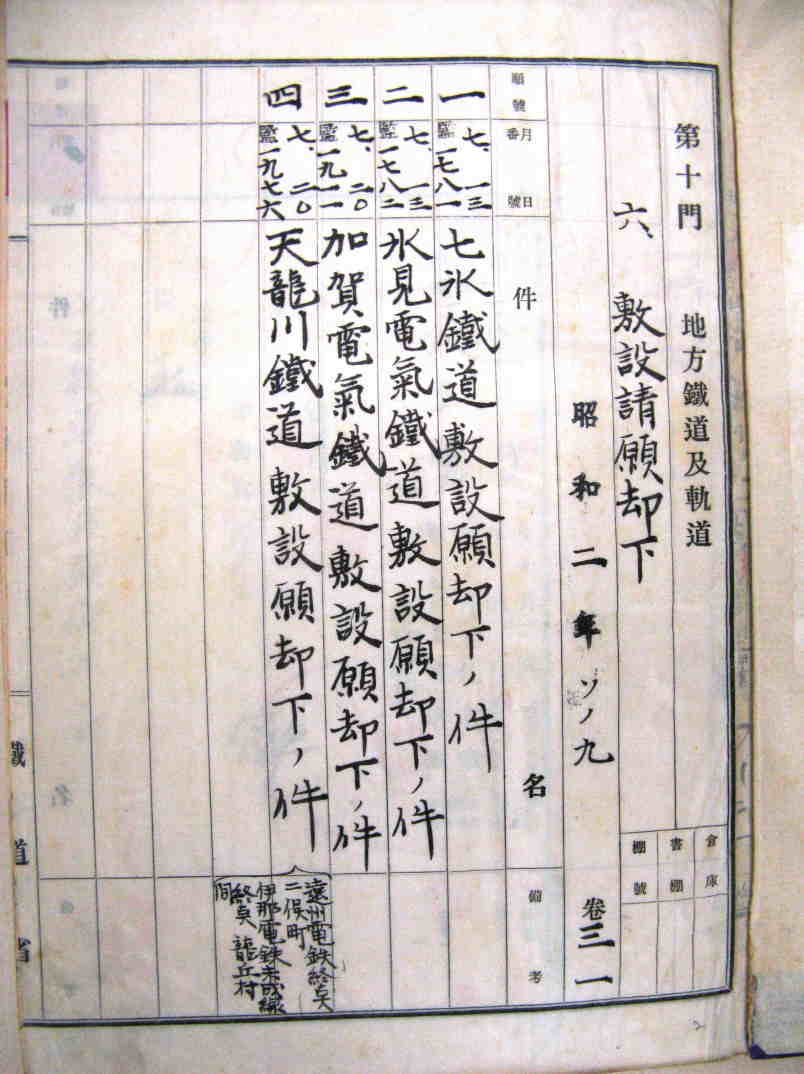 第十門 地方鐵道及軌道
倉庫
書棚
棚號
六、敷設請願却下
昭和二年ソノ九 卷三一
順號 月日 番號 件名 備考
一 七、一三 監一七八一 七氷鐵道敷設願却下ノ件
二 七、一三 監一七八二 氷見電氣鐵道敷設願却下ノ件
三 七、二〇 監一九一一 加賀電氣鐵道敷設願却下ノ件
四 七、二〇 監一九七六 天龍川鐵道敷設願却下ノ件
遠州電鉄終点
二俣町
伊那電鉄未成線
終点 龍丘村
間
鐵道省